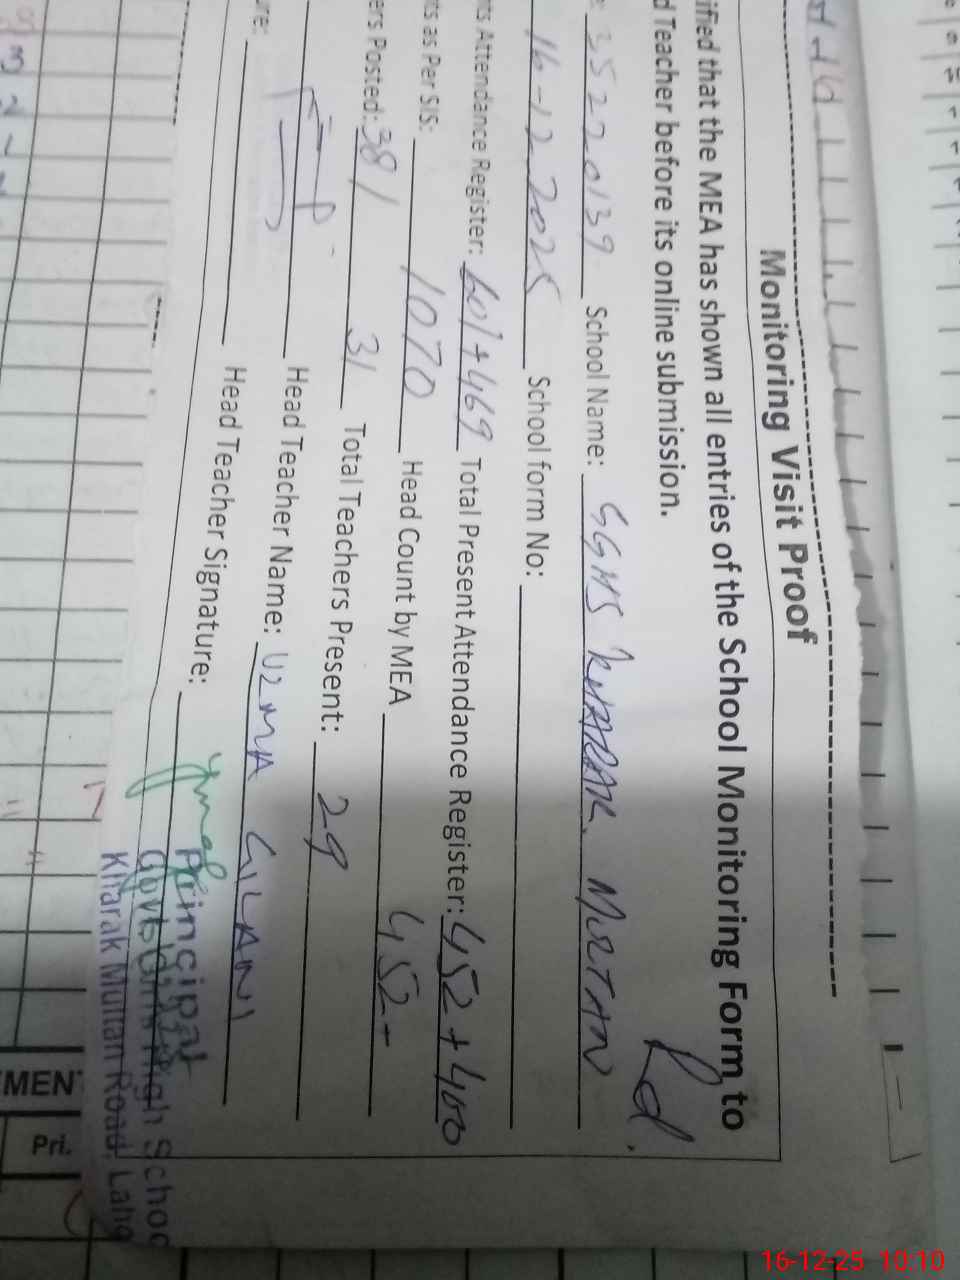 Monitoring Visit Proof
ified that the MEA has shown all entries of the School Monitoring Form to
d Teacher before its online submission.
35220139 School Name: GGHS KHARAK MULTAN Rd.
16-12-2025 School form No:
ts Attendance Register: 601+469 Total Present Attendance Register: 452+400
ts as Per SIS: 1070 Head Count by MEA 452+
ers Posted: 38/ 31 Total Teachers Present: 29
Head Teacher Name: UZMA GILANI
re: Head Teacher Signature:
Principal
Govt. Girls High School
Kharak Multan Road, Laho
MEN
Pri.
16-12-25 10:10